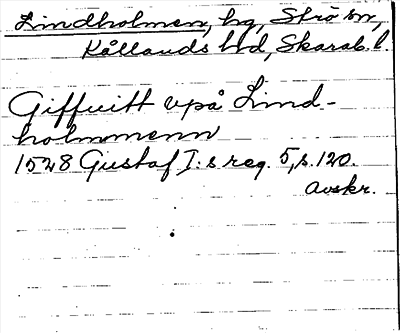 Lindholmen, hg, Strö sn,
Kållands hd, Skarab. l.
Giffuitt vpå Lind-
holmmenn
1528 Gustaf I:s reg. 5, s. 120.
Avskr.